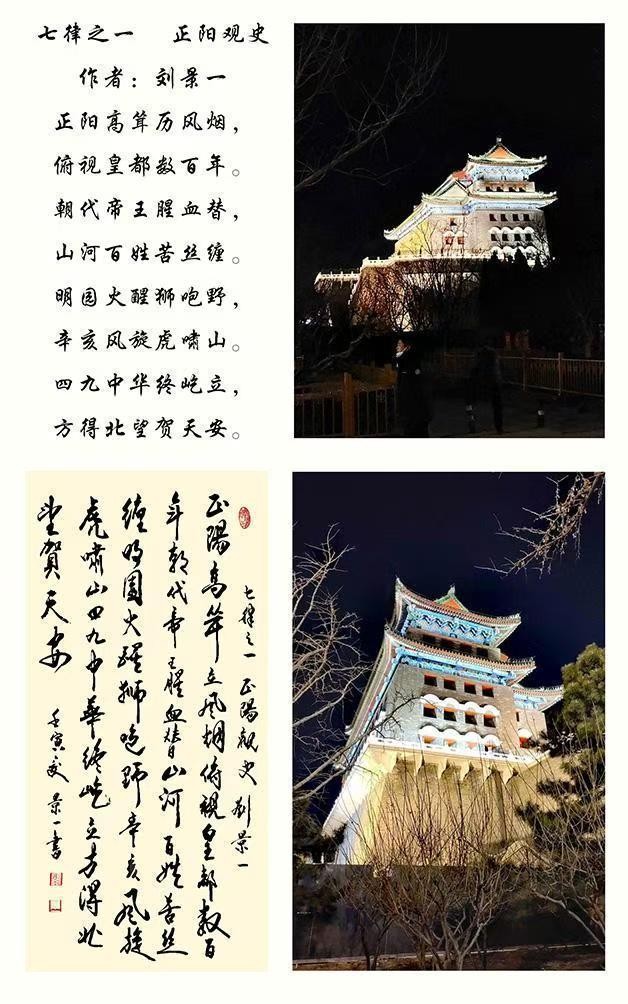 七律之一 正阳观史
作者：刘景一
正阳高耸历风烟，
俯视皇都数百年。
朝代帝王腥血替，
山河百姓苦丝缠。
明园火醒狮咆野，
辛亥风旋虎啸山。
四九中华终屹立，
方得北望贺天安。
七律之一 正陽觀史 刘景一
正陽高耸立风烟俯视皇都数百
年朝代帝王腥血替山河百姓苦丝
缠明園火醒狮咆野辛亥风旋
虎啸山四九中華终屹立方得北
望賀天安
壬寅 景一書